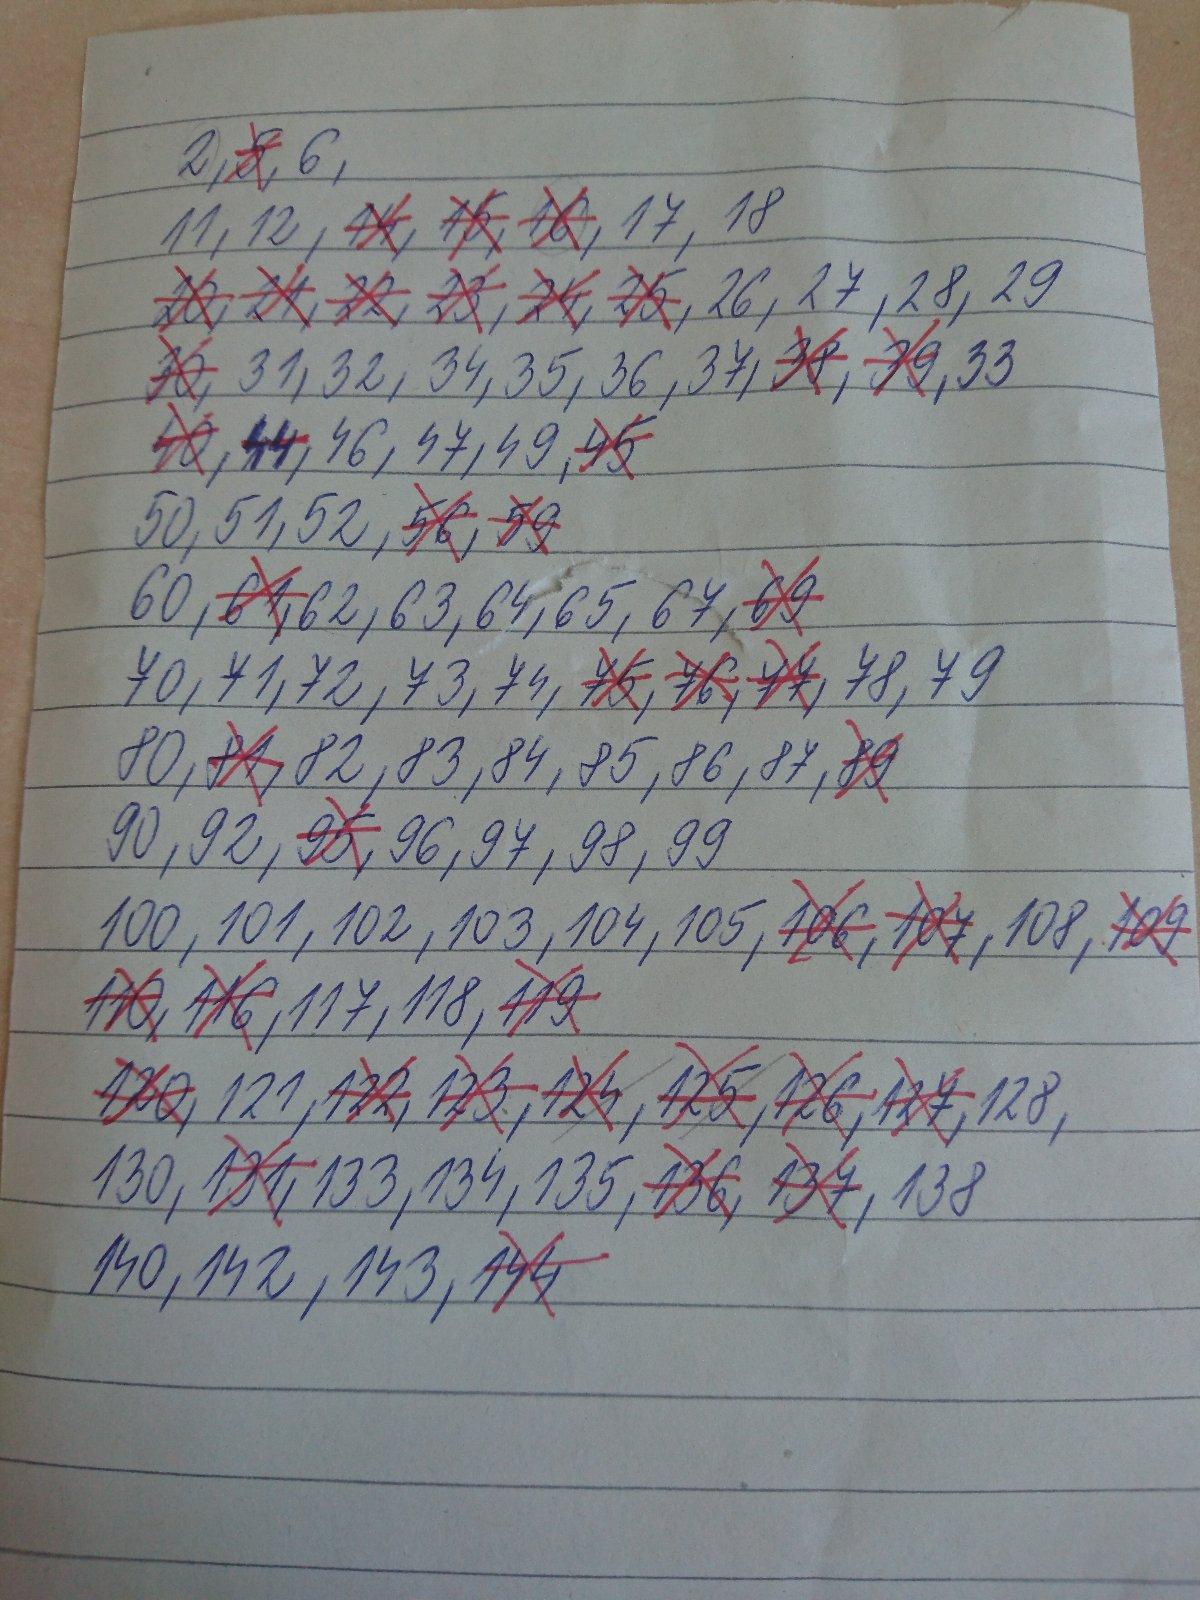 2, 5, 6,
11, 12, 14, 15, 16, 17, 18
20, 21, 22, 23, 24, 25, 26, 27, 28, 29
30, 31, 32, 34, 35, 36, 37, 38, 39, 33
40, 44, 46, 47, 49, 45
50, 51, 52, 56, 59
60, 61, 62, 63, 64, 65, 67, 69
70, 71, 72, 73, 74, 75, 76, 77, 78, 79
80, 81, 82, 83, 84, 85, 86, 87, 89
90, 92, 95, 96, 97, 98, 99
100, 101, 102, 103, 104, 105, 106, 107, 108, 109
110, 116, 117, 118, 119
120, 121, 122, 123, 124, 125, 126, 127, 128,
130, 131, 133, 134, 135, 136, 137, 138
140, 142, 143, 144